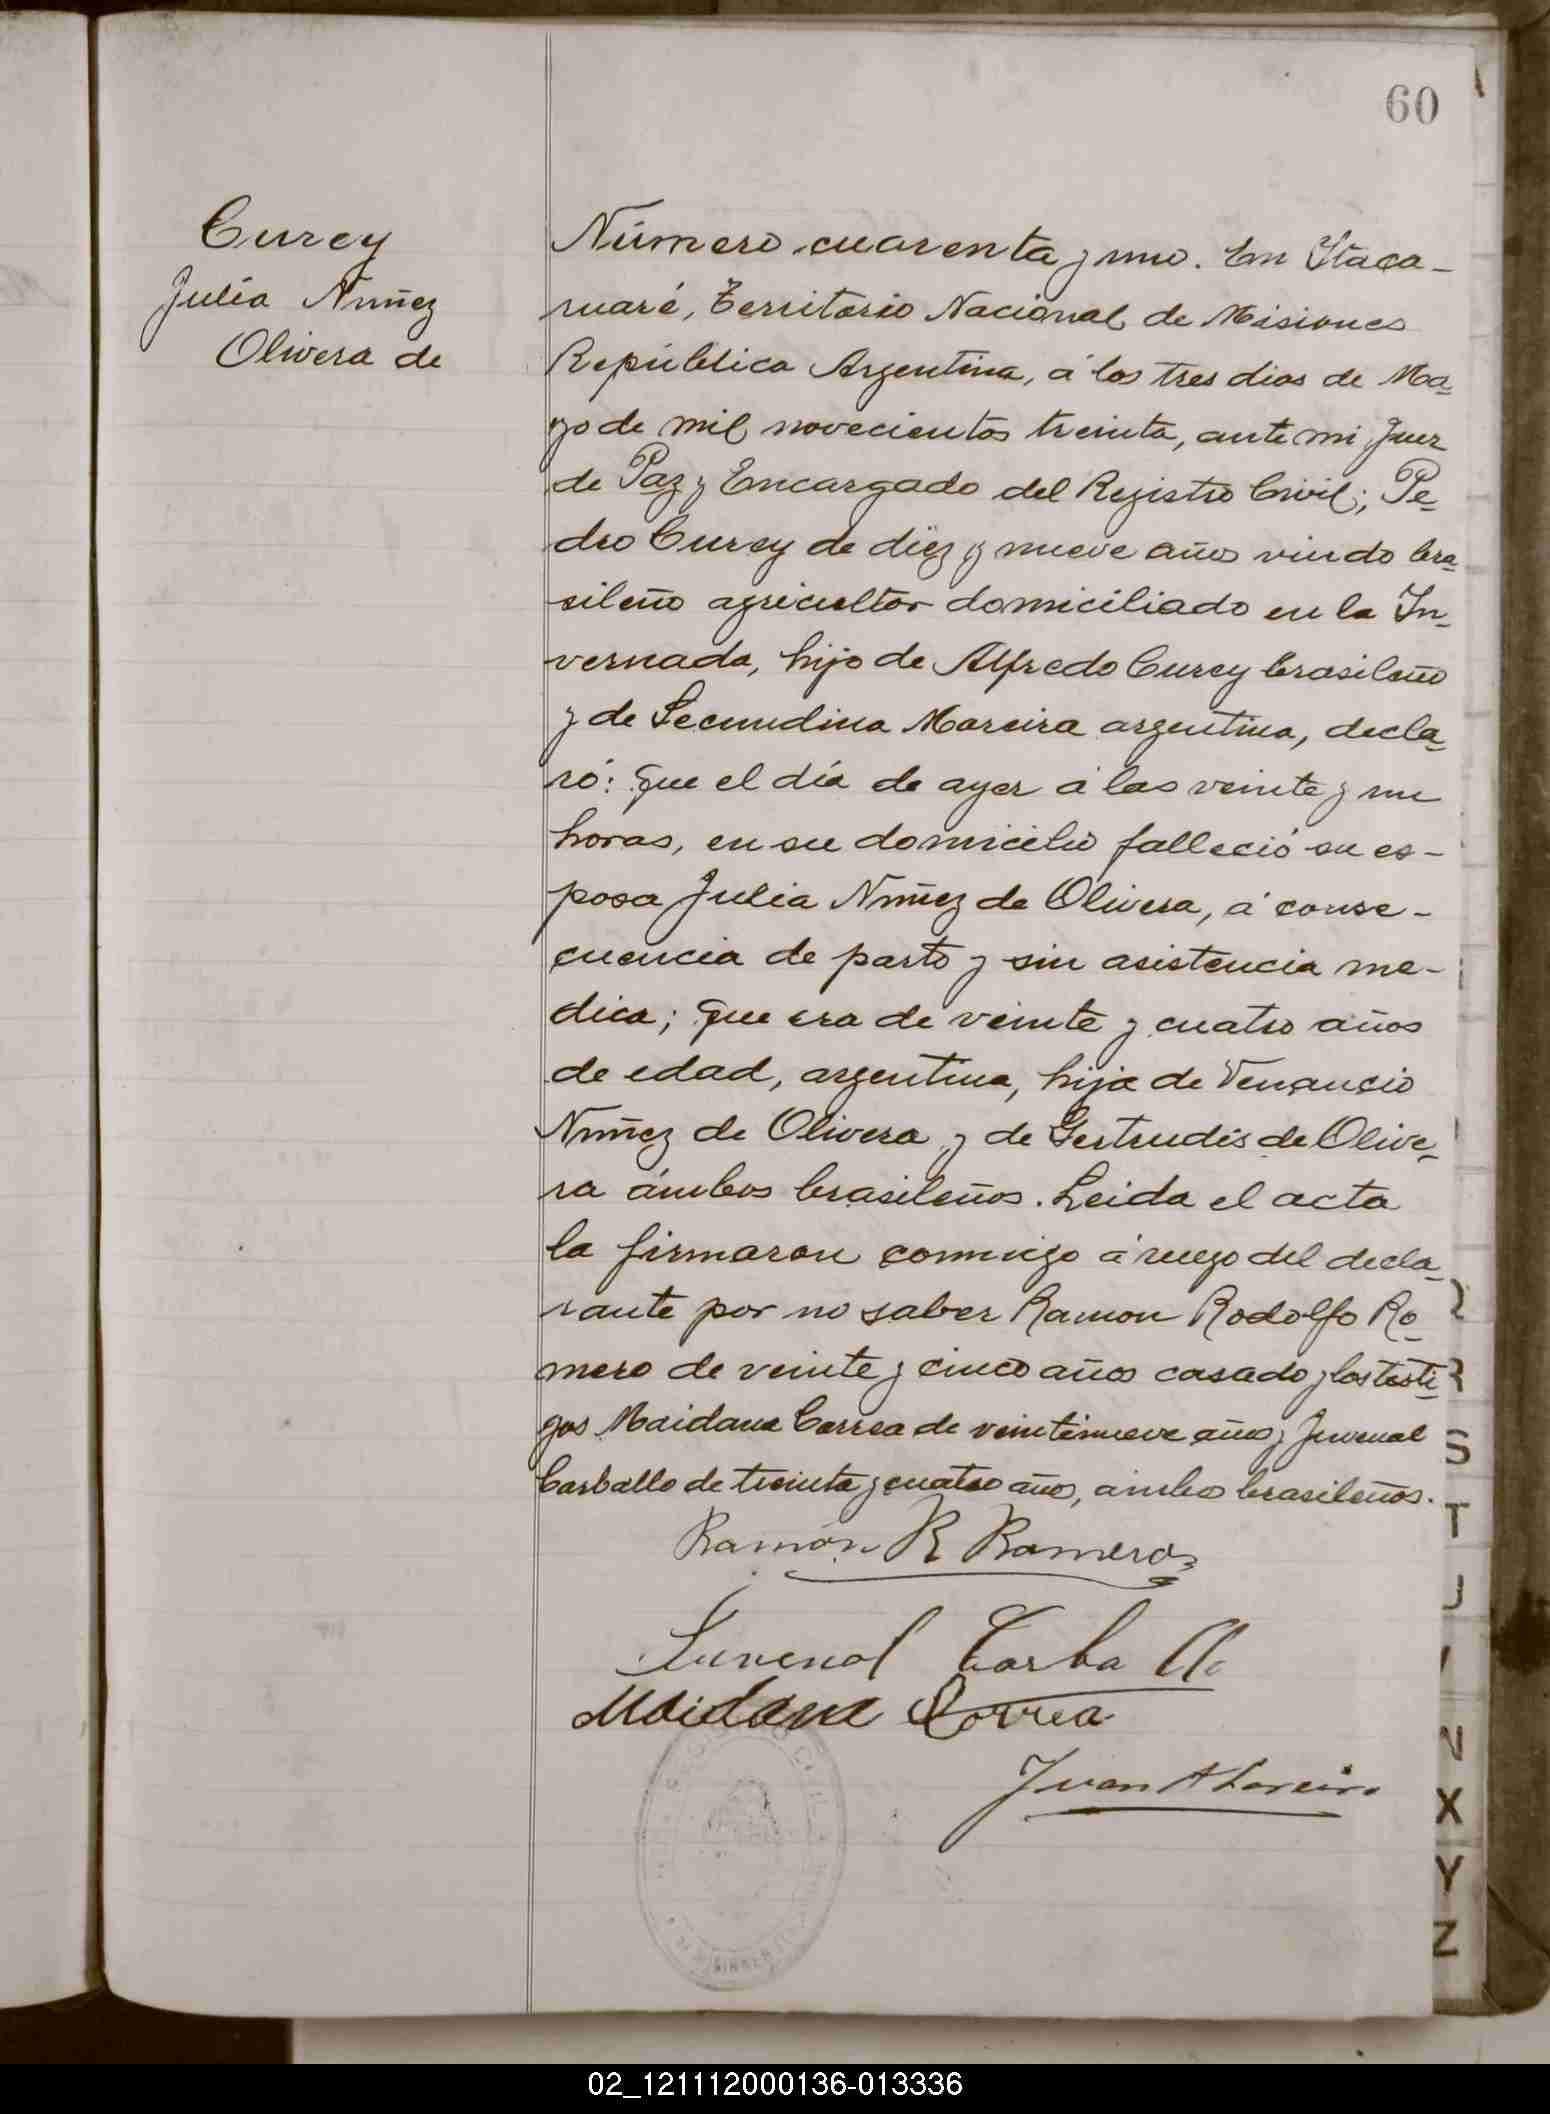 60
Curey
Julia Nuñez
Olivera de
Número cuarenta y uno. En Itaca-
ruaré, Territorio Nacional de Misiones
República Argentina, á los tres dias de Ma-
yo de mil novecientos treinta, ante mi Juez
de Paz y Encargado del Registro Civil; Pe-
dro Curey de diez y nueve años viudo bra-
sileño agricultor domiciliado en la In-
vernada, hijo de Alfredo Curey brasileño
y de Secundina Moreira argentina, decla-
ró: que el día de ayer á las veinte y un
horas, en su domicilio falleció su es-
posa Julia Nuñez de Olivera, á conse-
cuencia de parto y sin asistencia me-
dica; que era de veinte y cuatro años
de edad, argentina, hija de Venancio
Nuñez de Olivera y de Gertrudis de Olive-
ra ámbos brasileños. Leida el acta
la firmaron conmigo á ruego del decla-
rante por no saber Ramon Rodolfo Ro-
mero de veinte y cinco años casado y los testi-
gos Maidana Correa de veintinueve años y Juvenal
Carballo de treinta y cuatro años, ámbos brasileños.
Ramón R Romero
Juvenal Carballo
Maidana Correa
Juan A
R
S
T
X
Y
Z
02_121112000136-013336